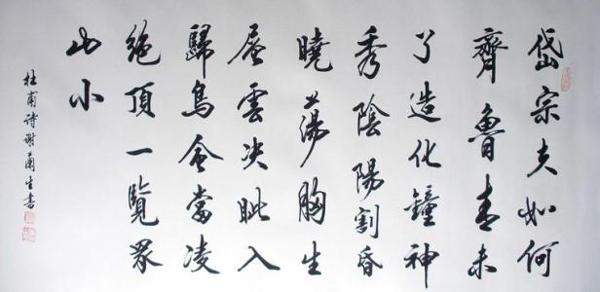 岱宗夫如何
齊魯青未
了造化鐘神
秀陰陽割昏
曉蕩胸生
層雲决眦入
歸鳥會當凌
絕頂一覽眾
山小
杜甫詩謝蘭生書